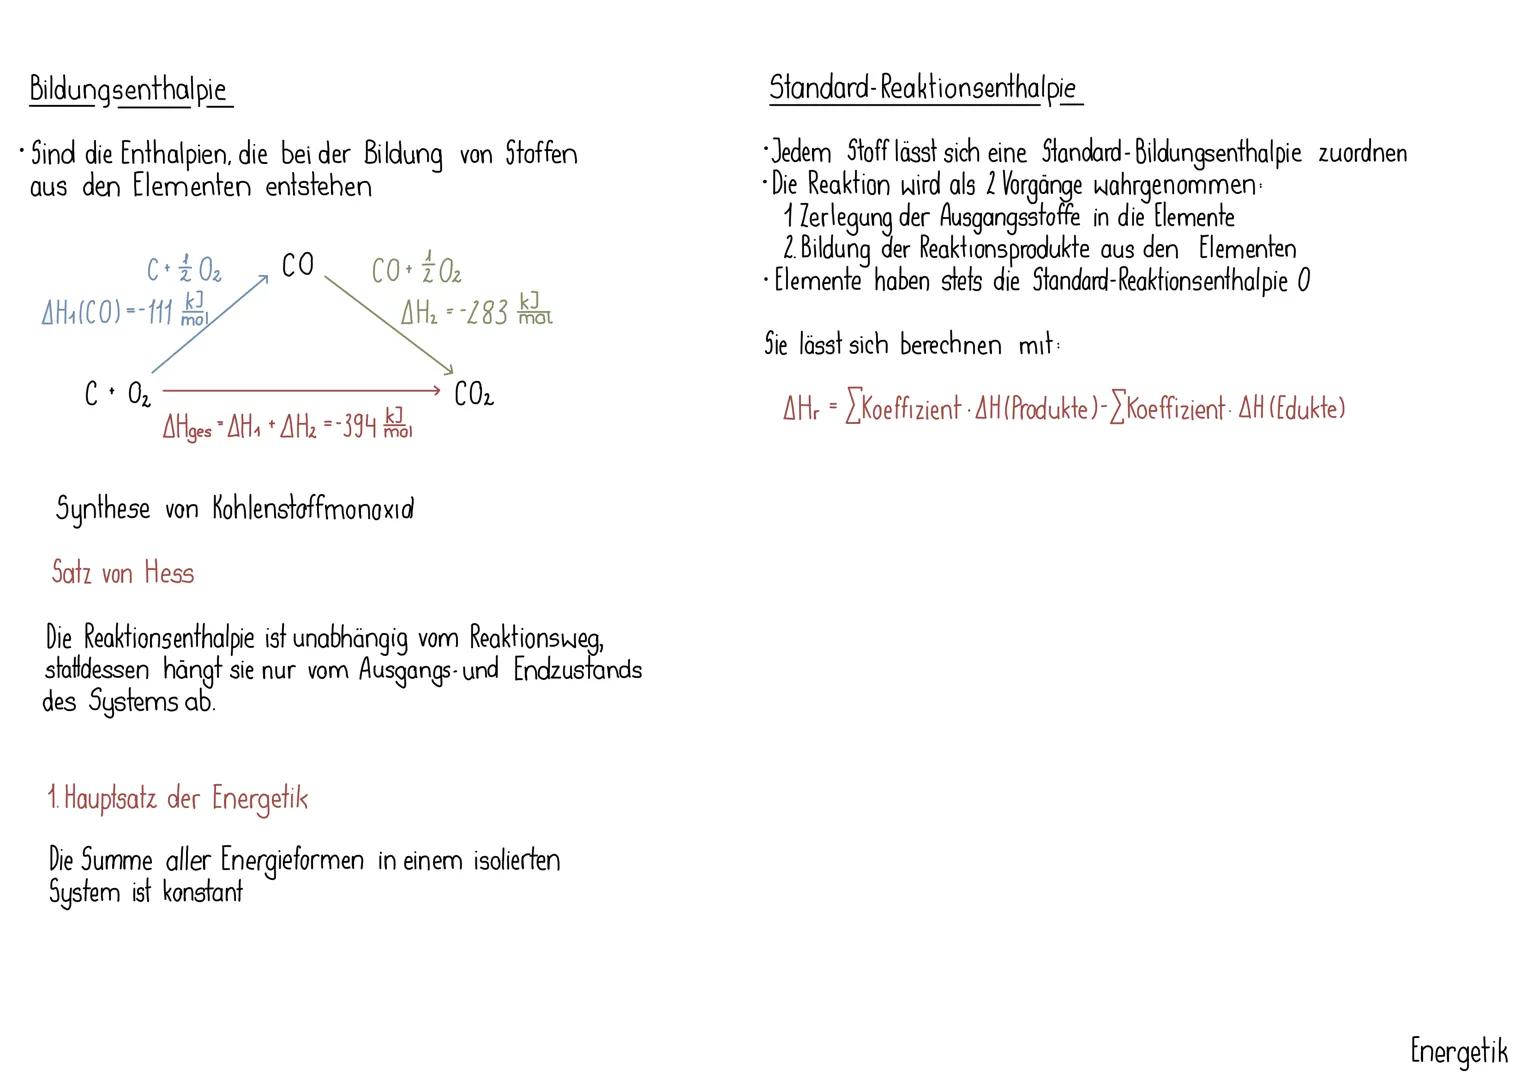 Bildungsenthalpie
· Sind die Enthalpien, die bei der Bildung von Stoffen
aus den Elementen entstehen
C + 1/2 O₂
CO
CO + 1/2 O₂
ΔH₁(CO) = -111 kJ/mol
ΔH₂ = -283 kJ/mol
C + O₂
CO₂
ΔHges = ΔH₁ + ΔH₂ = -394 kJ/mol
Synthese von Kohlenstoffmonoxid
Satz von Hess
Die Reaktionsenthalpie ist unabhängig vom Reaktionsweg,
stattdessen hängt sie nur vom Ausgangs- und Endzustands
des Systems ab.
1. Hauptsatz der Energetik
Die Summe aller Energieformen in einem isolierten
System ist konstant
Standard-Reaktionsenthalpie
· Jedem Stoff lässt sich eine Standard-Bildungsenthalpie zuordnen
· Die Reaktion wird als 2 Vorgänge wahrgenommen:
1 Zerlegung der Ausgangsstoffe in die Elemente
2. Bildung der Reaktionsprodukte aus den Elementen
· Elemente haben stets die Standard-Reaktionsenthalpie 0
Sie lässt sich berechnen mit:
ΔHr = ∑Koeffizient · ΔH(Produkte) - ∑Koeffizient · ΔH(Edukte)
Energetik